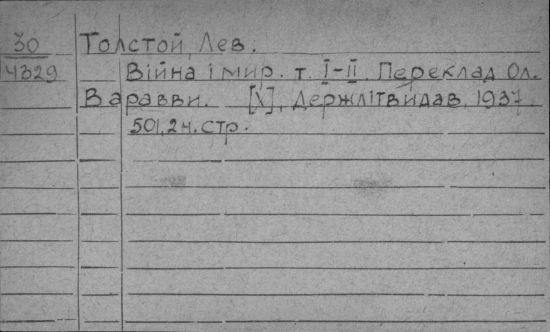 30 Толстой, Лев.
4329 Війна і мир. т. I-II. Переклад Ол.
Варавви. [X], Держлітвидав, 1937.
501, 2 н. стр.